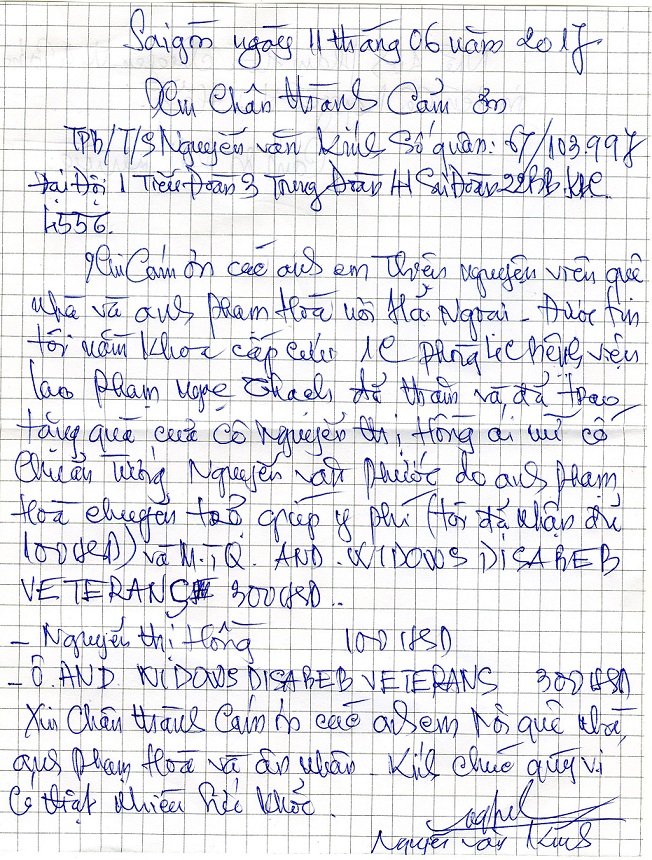 Saigòn ngày 11 tháng 06 năm 2017
Xin Chân thành Cảm ơn
TPB/T/S Nguyễn văn Kính Số quân: 67/103.997
Đại Đội 1 Tiểu Đoàn 3 Trung Đoàn 41 Sư Đoàn 22BB. KBC
4556.
Xin Cảm ơn các anh em thiện nguyện viên quê
nhà và anh phạm Hoà nơi Hả Ngoại - Được tin
tôi nằm khoa cấp cứu 1C phòng bệnh viện
lao phạm ngọc Thạch đã thăm và đã trao
tặng quà của cô Nguyễn thị Hồng ái nữ cố
Chuẩn tướng Nguyễn văn phước do anh phạm
Hoà chuyển giúp y phí (tôi đã nhận đủ
100 USD) và M.TQ. AND. WIDOWS DISABEB
VETERANS 300 USD..
- Nguyễn thị Hồng 100 USD
- Ô. AND WIDOWS DISABEB VETERANS 300 USD
Xin Chân thành Cảm ơn các anh em nơi quê nhà,
anh phạm Hoà và ân nhân. Kính chúc quý vị
Có thật nhiều sức khỏe.
Nguyễn văn Kính